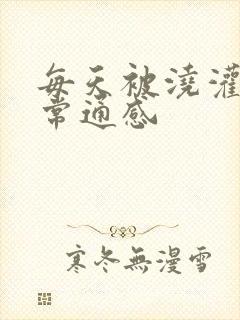 每天被澆灌
常通感
寒冬無漫雪